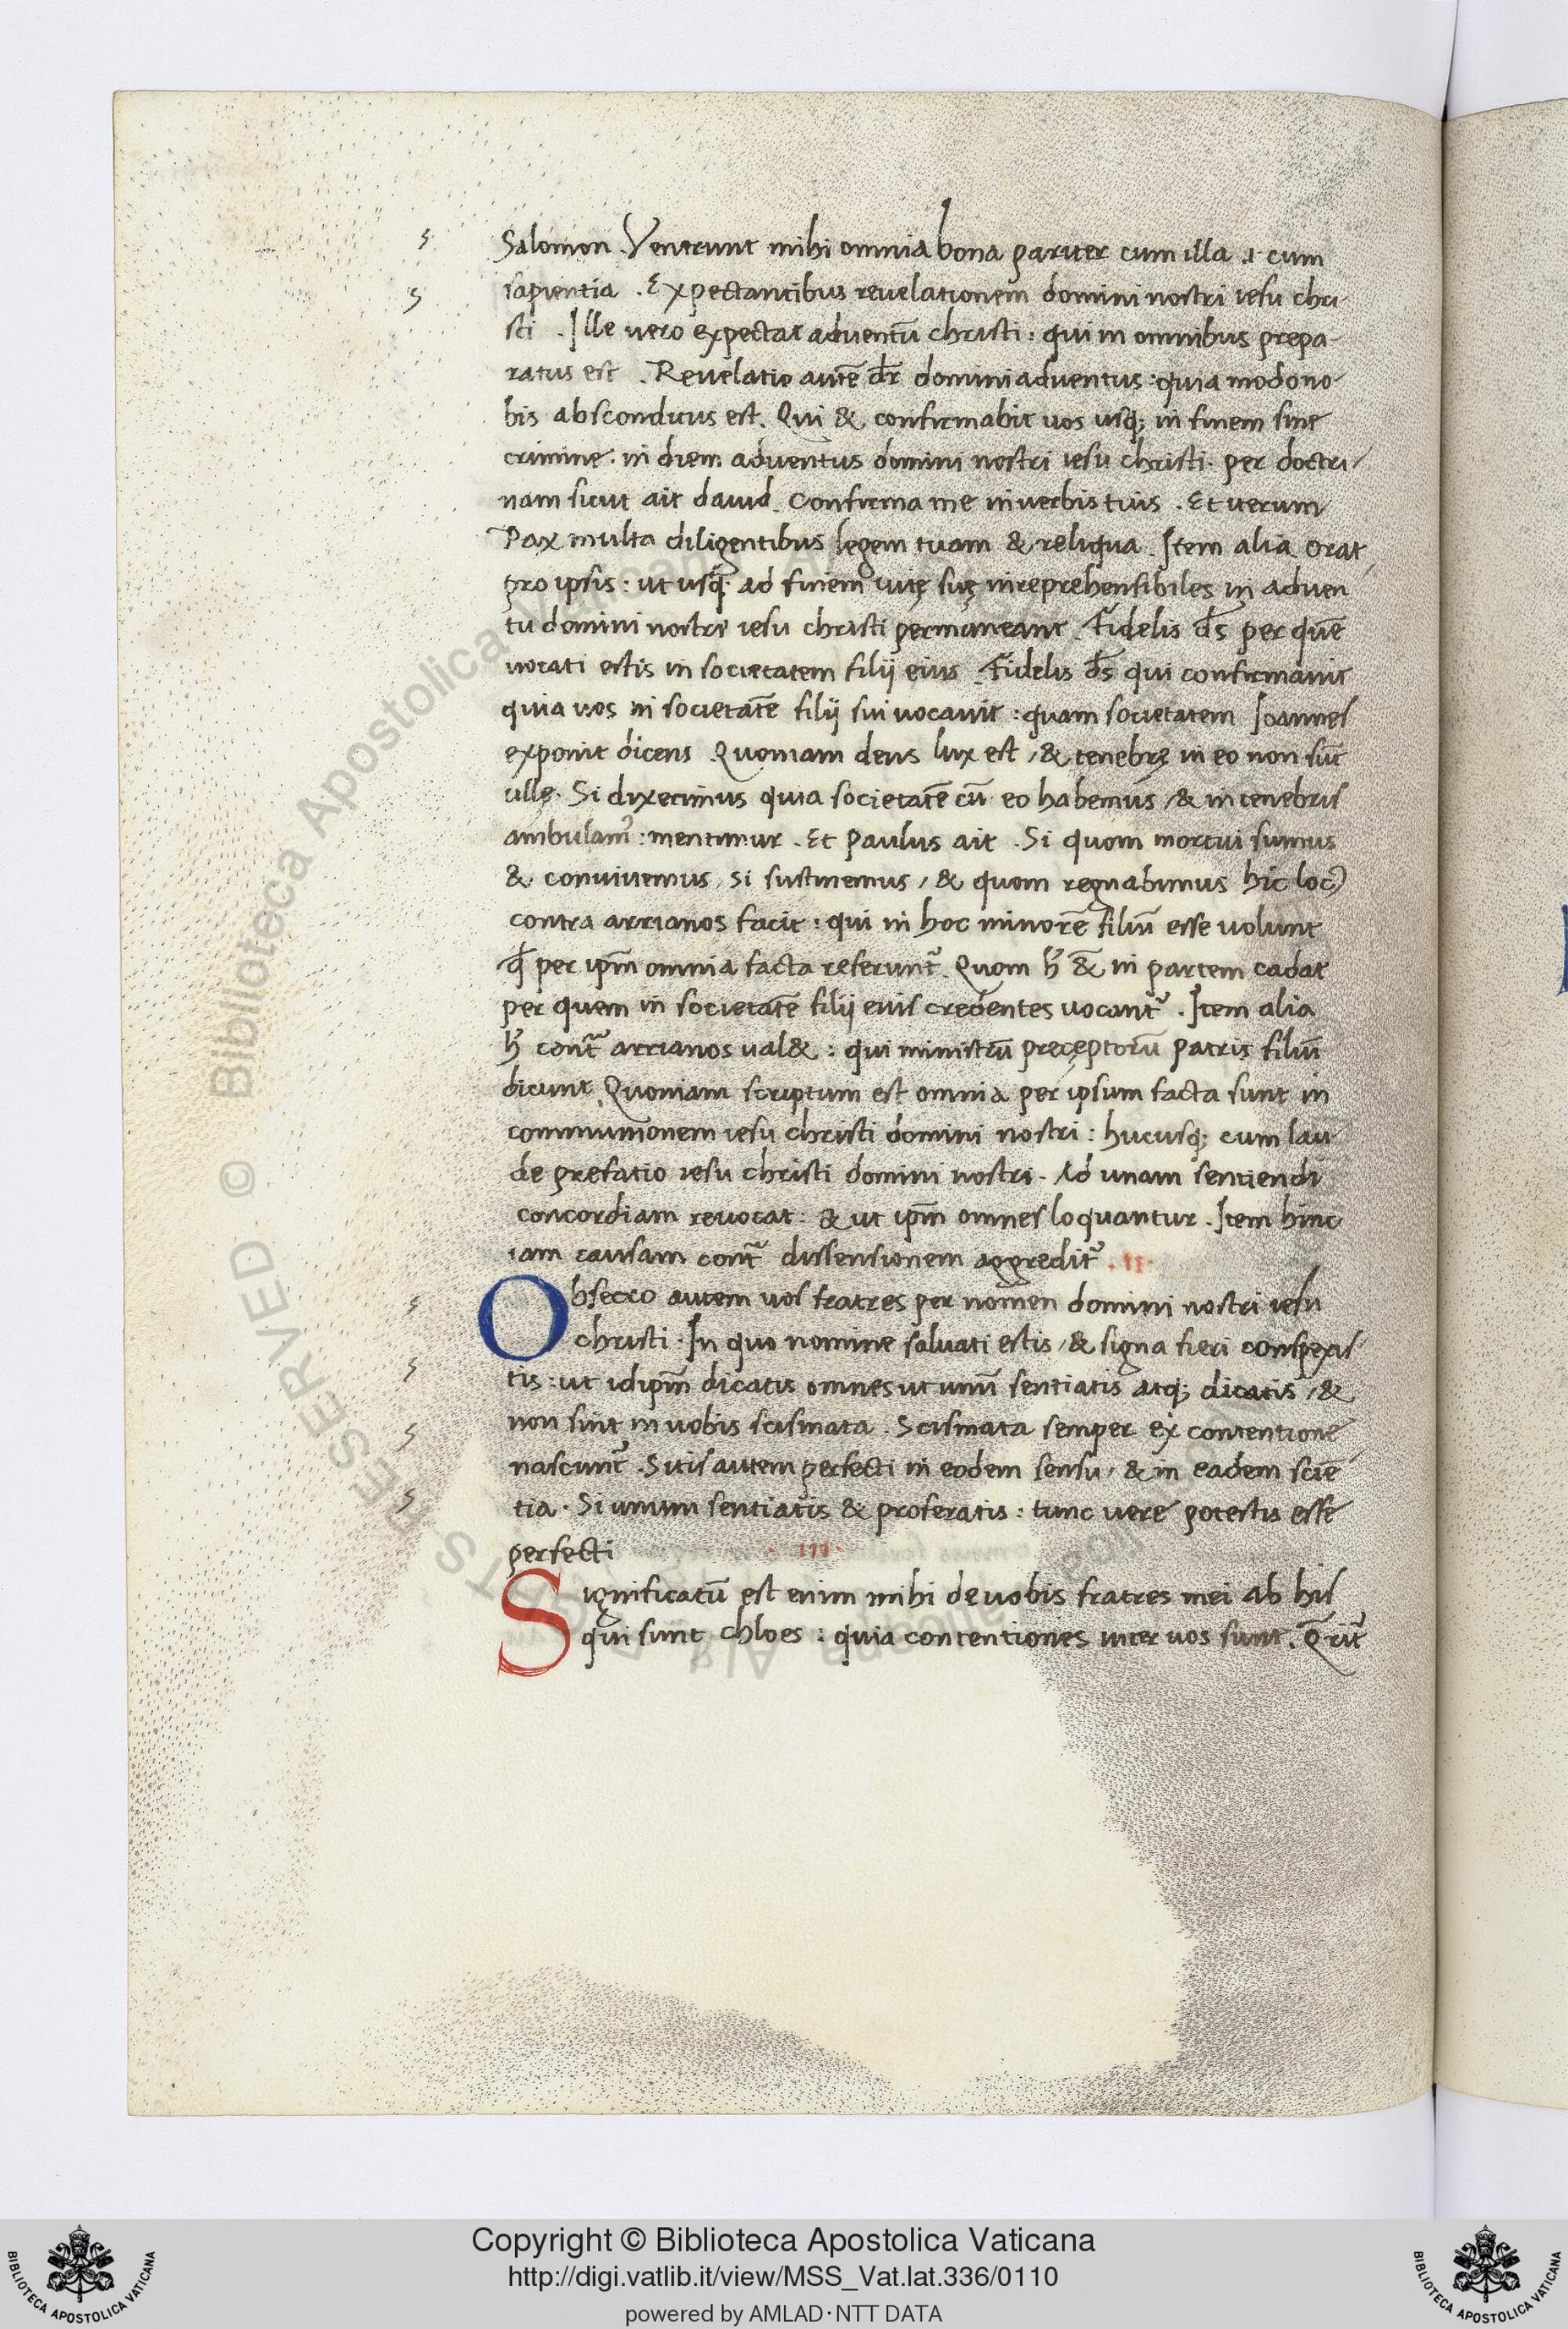 Salomon. Venerunt mihi omnia bona pariter cum illa .i. cum
sapientia. Expectantibus reuelationem domini nostri iesu chri
sti. Ille uero expectat aduentū christi: qui in omnibus prepa-
ratus est. Reuelatio autē dr̄ domini aduentus: quia modo no-
bis absconditus est. Qui & confirmabit uos usq; in finem sine
crimine. in diem aduentus domini nostri iesu christi. per doctri-
nam sicut ait dauid. Confirma me in uerbis tuis. Et iterum
Pax multa diligentibus legem tuam & reliqua. Item alia. Orat
pro ipsis: ut usq; ad finem uitę suę inreprehensibiles in aduen
tu domini nostri iesu christi permaneant. Fidelis ds̄ per quē
uocati estis in societatem filij eius. Fidelis ds̄ qui confirmauit
quia uos in societatē filij sui uocauit: quam societatem Ioannes
exponit dicens. Quoniam deus lux est, & tenebrę in eo non sūt
ullę. Si dixerimus quia societatē cū eo habemus, & in tenebris
ambulam': mentimur. Et Paulus ait. Si quom mortui sumus
& conuiuemus, si sustinemus, & quom regnabimus hic loc'
contra arrianos facit: qui in hoc minorē filiū esse uolunt
q̄ per ipm̄ omnia facta referunt'. Quom h' & in partem cadat
per quem in societatē filij eius credentes uocant'. Item alia
h' cont' arrianos ual&: qui ministrū preceptorū patris filiū
dicunt. Quoniam scriptum est omnia per ipsum facta sunt in
communionem iesu christi domini nostri: hucusq; cum lau-
de prefatio iesu christi domini nostri. Ad unam sentiendi
concordiam reuocat: & ut ipm̄ omnes loquantur. Item hinc
iam causam cont' dissensionem aggredit'. .II.
Obsecro autem uos fratres per nomen domini nostri iesu
christi. In quo nomine saluati estis, & signa fieri conspexis
tis: ut idipm̄ dicatis omnes ut unū sentiatis atq; dicatis, &
non sint in uobis scismata. Scismata semper ex contentione
nascunt'. Sitis autem perfecti in eodem sensu, & in eadem sciē
tia. Si unum sentiatis & proferatis: tunc uere potestis esse
perfecti .III.
Significatū est enim mihi de uobis fratres mei ab his
qui sunt chloes: quia contentiones inter uos sunt.
RESERVED © Biblioteca Apostolica
Copyright © Biblioteca Apostolica Vaticana
http://digi.vatlib.it/view/MSS_Vat.lat.336/0110
powered by AMLAD·NTT DATA
BIBLIOTECA APOSTOLICA VATICANA
BIBLIOTECA APOSTOLICA VATICANA